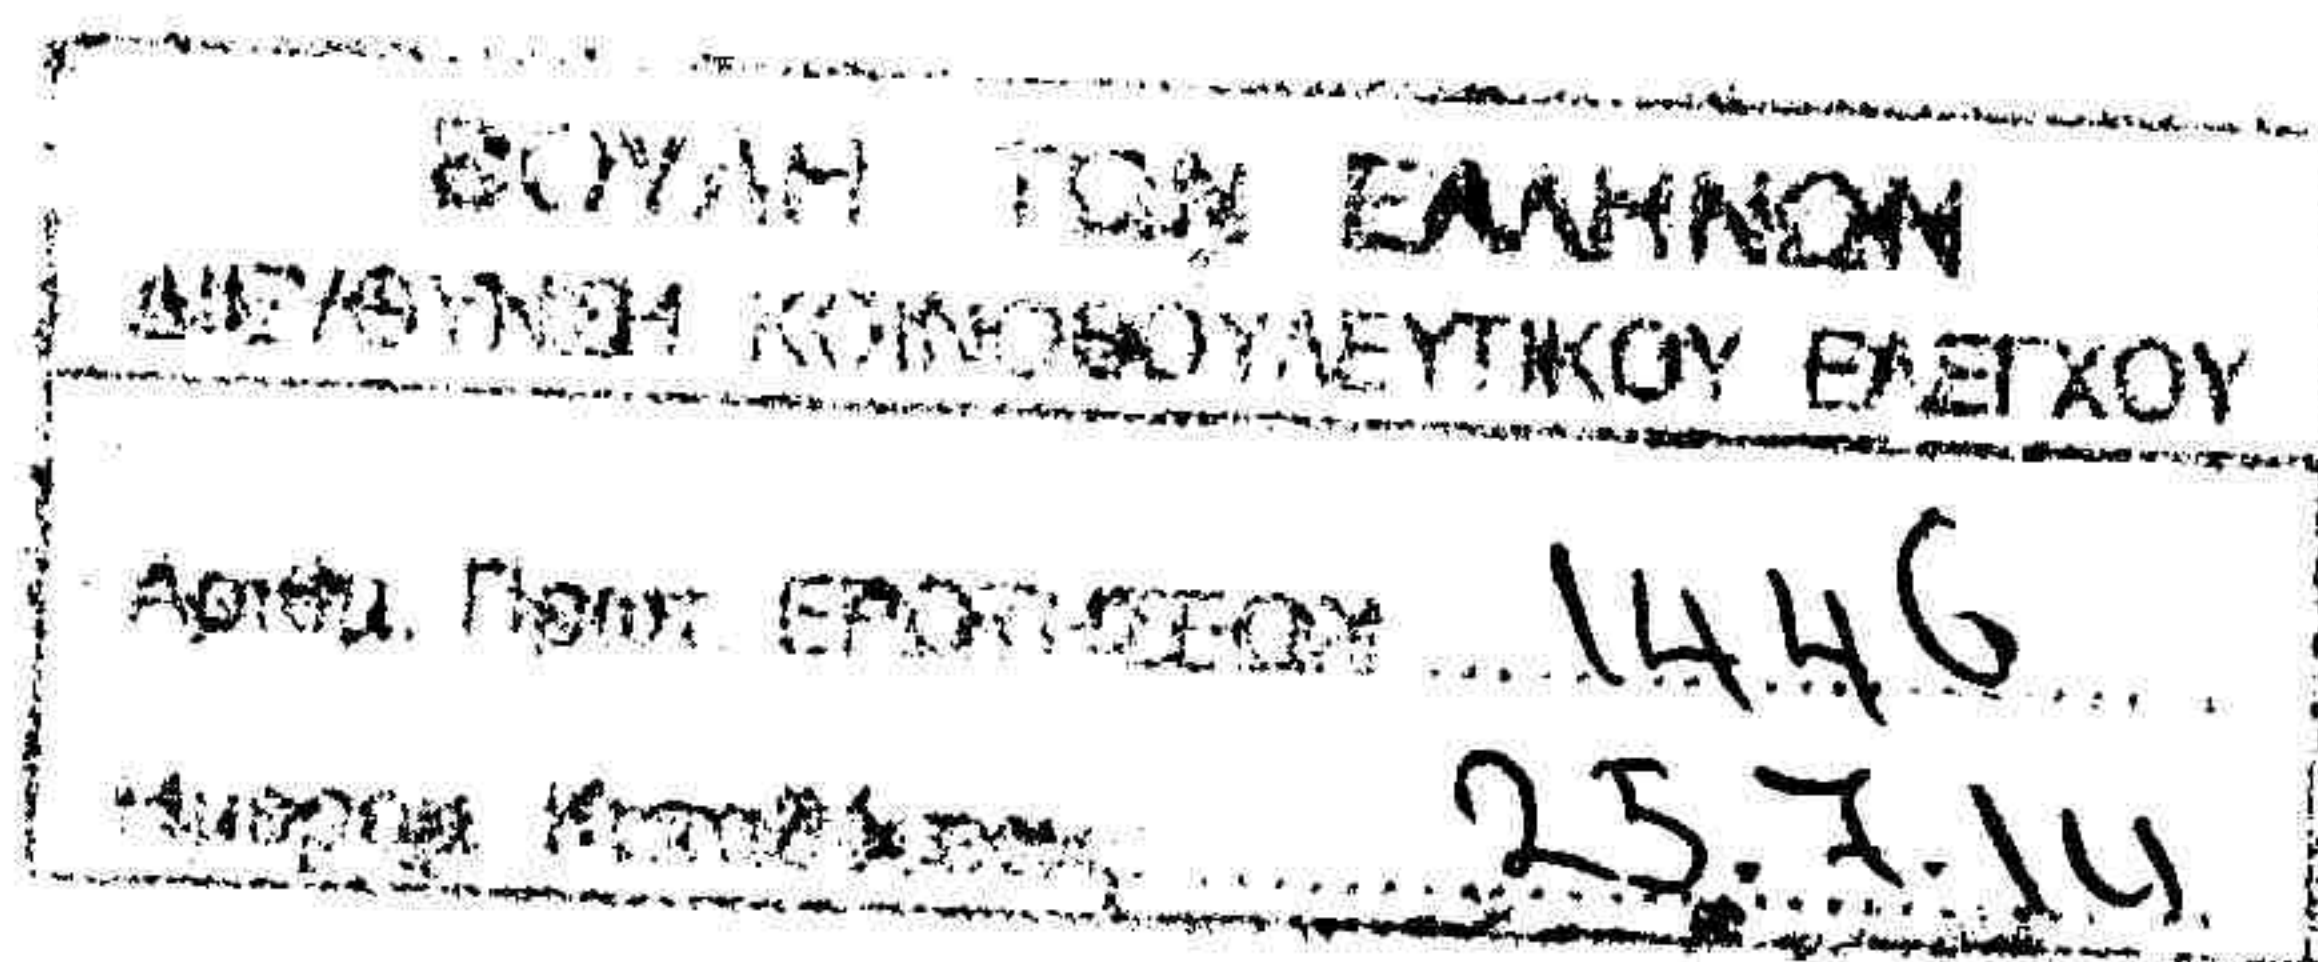 ΒΟΥΛΗ ΤΩΝ ΕΛΛΗΝΩΝ
ΔΙΕΥΘΥΝΣΗ ΚΟΙΝΟΒΟΥΛΕΥΤΙΚΟΥ ΕΛΕΓΧΟΥ
Αριθμ. Πρωτ. ΕΡΩΤΗΣΕΩΝ 1446
Ημερομ. 25.7.14